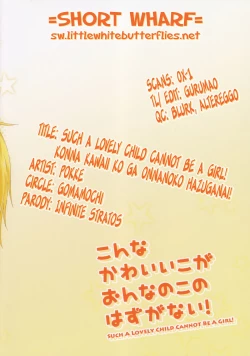 =SHORT WHARF=
sw.littlewhitebutterflies.net
SCANS: OX-1
TL/ EDIT: GURUMAO
QC: BLURK, ALTEREGGO
TITLE: SUCH A LOVELY CHILD CANNOT BE A GIRL!
KONNA KAWAII KO GA ONNANOKO HAZUGANAI!
ARTIST: POKKE
CIRCLE: GOMAMOCHI
PARODY: INFINITE STRATOS
こんな
かわいいこが
おんなのこの
はずがない!
SUCH A LOVELY CHILD CANNOT BE A GIRL!